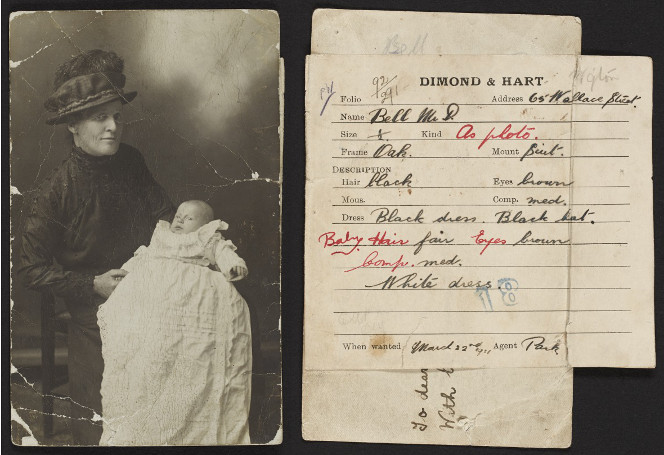 Bell
DIMOND & HART
Folio 92/91 Address 65 Wallace Street.
Name Bell Mr D.
Size Kind As photo.
Frame Oak. Mount
DESCRIPTION
Hair black Eyes brown
Mous. Comp. med.
Dress Black dress. Black hat.
Baby Hair fair Eyes brown
Comp. med.
White dress.
18
When wanted March 22nd Agent Park
To dear
With